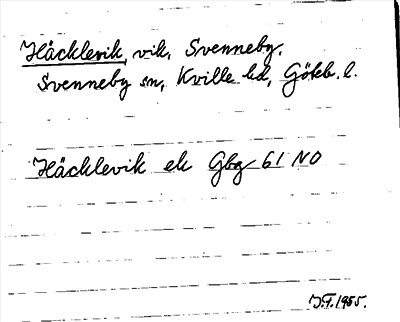 Häcklevik, vik, Svenneby,
Svenneby sn, Kville hd, Göteb. l.
Häcklevik ek Gbg 61 NO
1955.